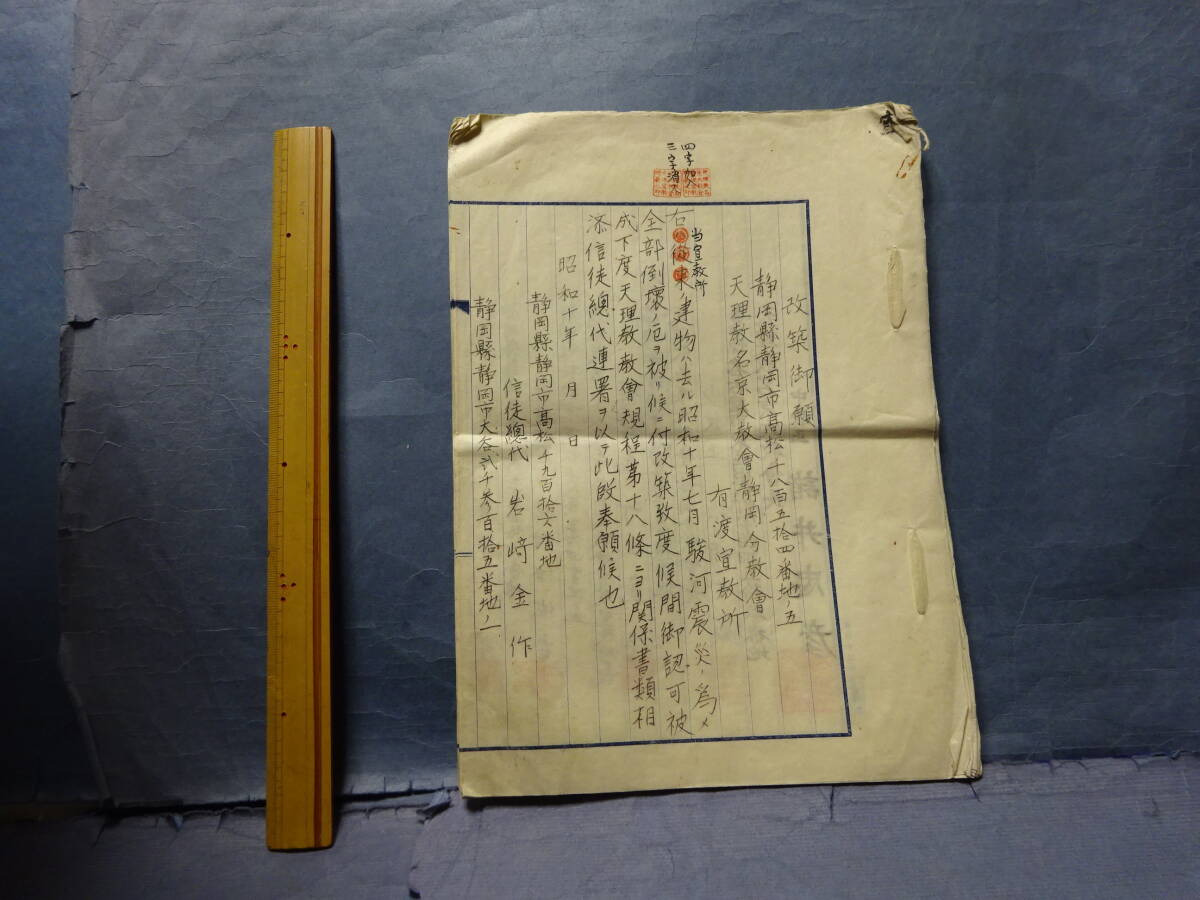 四字加入
三字消ス
改築御願
静岡縣静岡市高松千八百五拾四番地ノ五
天理教名京大教會静岡分教會
有渡宣教所
当宣教所
右ノ建物ハ去ル昭和十年七月駿河震災ノ爲メ
全部倒壞ノ厄ヲ被リ候ニ付改築致度候間御認可被
成下度天理教教會規程第十八條ニヨリ関係書類相
添信徒總代連署ヲ以テ此段奉願候也
昭和十年　月　日
静岡縣静岡市高松千九百拾六番地
信徒總代　岩﨑金作
静岡縣静岡市大谷弐千参百拾五番地ノ一